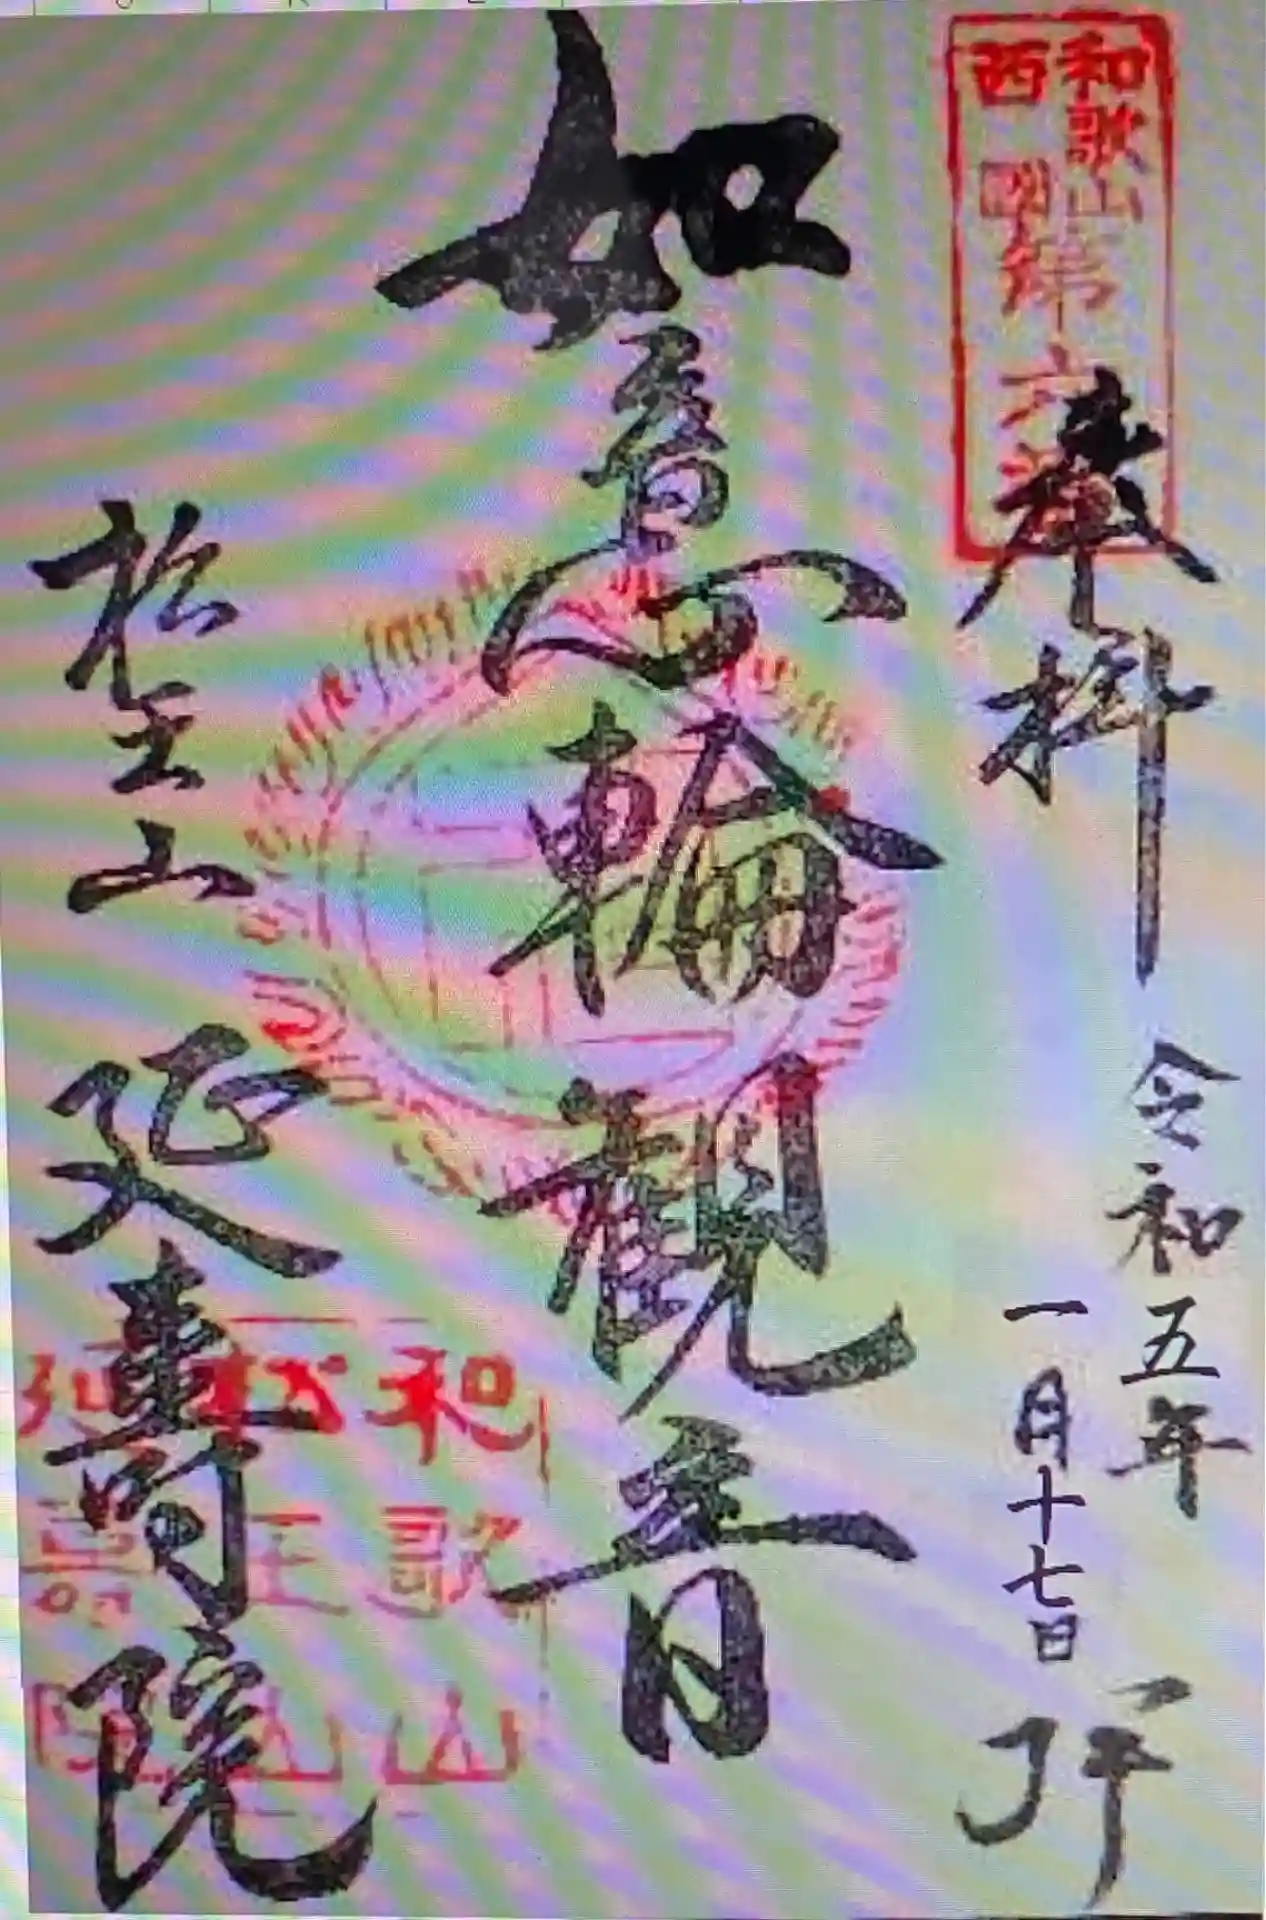 和歌山
西国第六番
奉拝
令和五年
一月十七日
行
如意輪観音
松生山
延寿院
和歌山